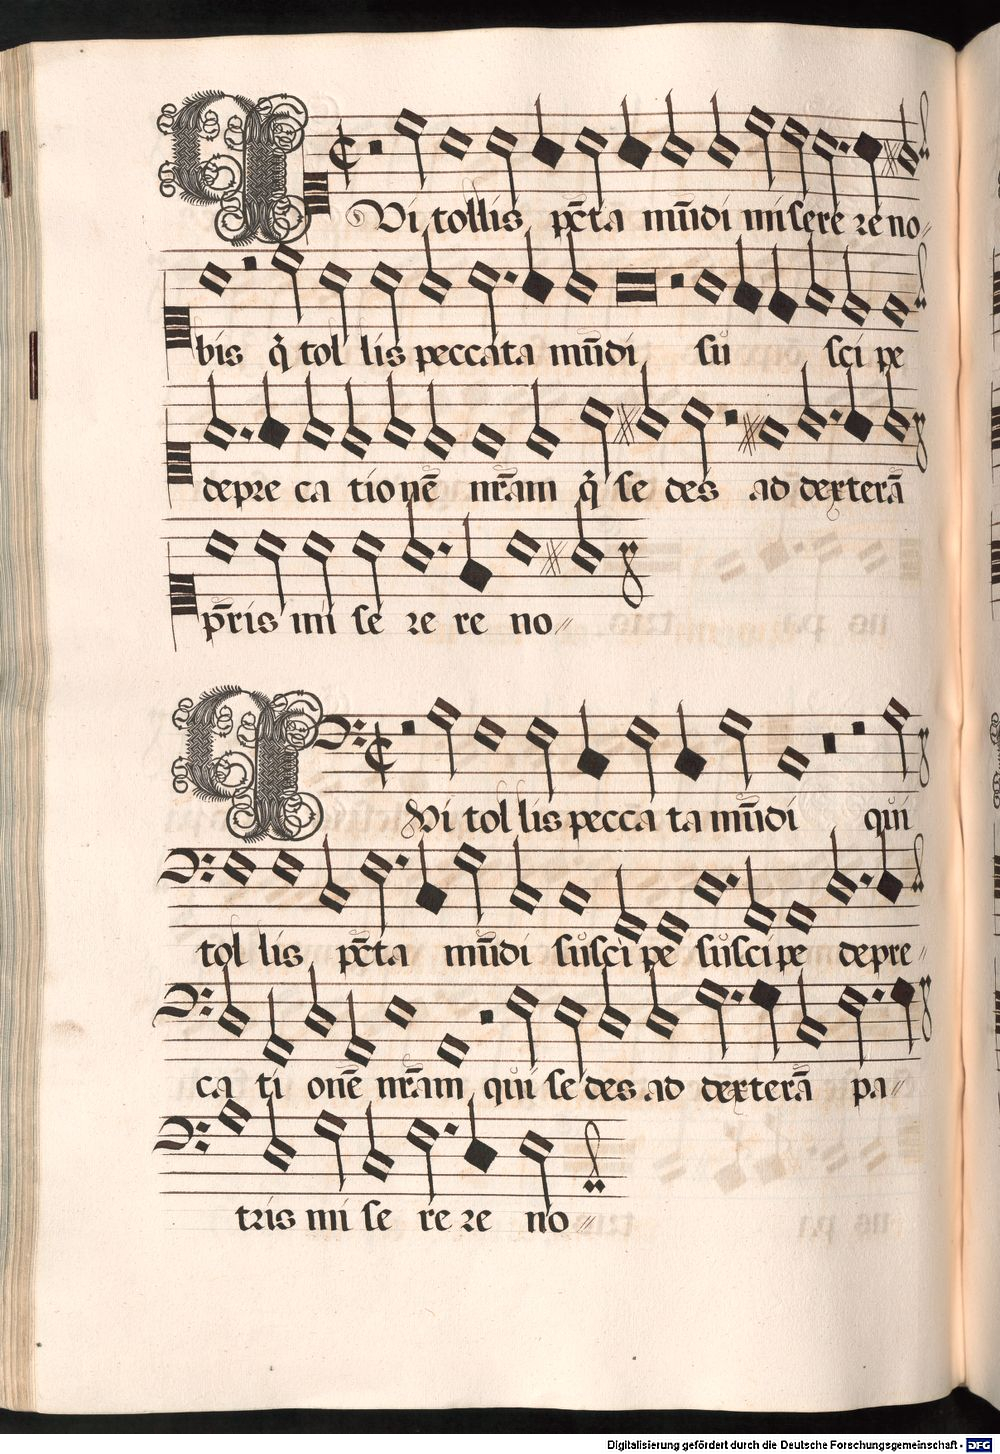 QVi tollis pc̄ta mūdi misere re no//
bis q̄ tol lis peccata mūdi su sci pe
depre ca tio nē nr̄am q̄ se des ad dexterā
pr̄is mi se re re no//
QVi tol lis pecca ta mūdi qui
tol lis pc̄ta mūdi susci pe susci pe depre//
ca ti onē nr̄am qui se des ad dexterā pa//
tris mi se re re no//
Digitalisierung gefördert durch die Deutsche Forschungsgemeinschaft - DFG